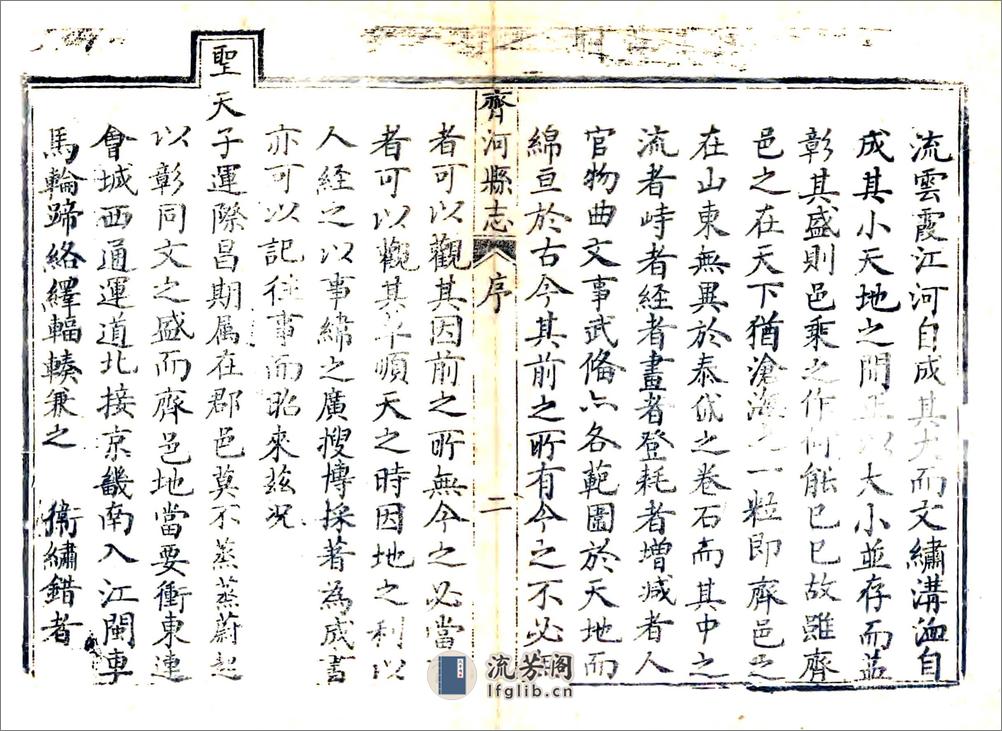 流雲霞江河自成其大而文繡溝洫自
成其小天地之間正以大小並存而益
彰其盛則邑乘之作何能已已故雖齊
邑之在天下猶滄海之一粒即齊邑之
在山東無異於泰岱之卷石而其中之
流者峙者経者畫者登耗者增減者人
官物曲文事武備亦各範圍於天地而
綿亘於古今其前之所有今之不必
齊河縣志 序 二
者可以觀其因前之所無今之必當
者可以觀其革順天之時因地之利以
人経之以事緯之廣搜博採著為成書
亦可以記往事而昭來茲况
聖天子運際昌期属在郡邑莫不蒸蒸蔚起
以彰同文之盛而齊邑地當要衝東連
會城西通運道北接京畿南入江閩車
馬輪蹄絡繹輻輳兼之 衛繡錯者
流芳閣
lfglib.cn